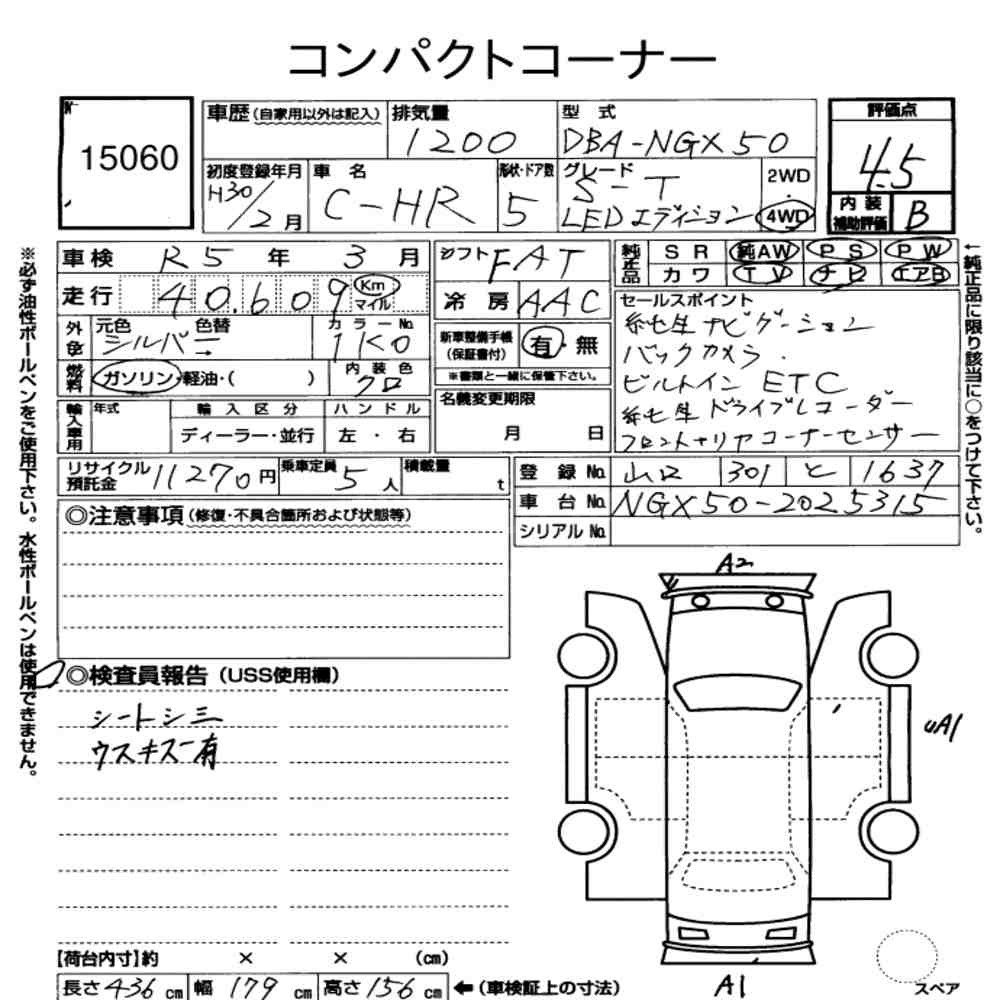 コンパクトコーナー
No.
15060
車歴(自家用以外は記入)
排気量
1200
型 式
DBA-NGX50
評価点
4.5
初度登録年月
H30/2月
車 名
C-HR
形状・ドア数
5
グレード
S-T
LEDエディション
2WD
・
4WD
内 装
補助評価
B
車検 R5 年 3 月
走行 40,609 Km
マイル
外色
元色 色替
シルバー→
カラーNo.
1K0
燃料
ガソリン・軽油・( )
内装色
クロ
輸入車用
年式
輸入区分
ディーラー・並行
ハンドル
左・右
シフト FAT
冷 房 AAC
新車整備手帳
(保証書付)
有・無
※書類と一緒に保管下さい。
名義変更期限
月 日
純正品
SR 純AW PS PW
カワ TV ナビ エアB
セールスポイント
純正ナビゲーション
バックカメラ.
ビルトイン ETC
純正ドライブレコーダー
フロント+リヤコーナーセンサー
リサイクル
預託金 11270円
乗車定員 5人
積載量 t
登 録 No. 山口 301 と 1637
車 台 No. NGX50-2025315
シリアル No.
◎注意事項(修復・不具合箇所および状態等)
◎検査員報告(USS使用欄)
シートシミ
ウスキズ有
A2
UA1
A1
スペア
【荷台内寸】約 × × (cm)
長さ436cm 幅179cm 高さ156cm ←(車検証上の寸法)
※必ず油性ボールペンをご使用下さい。水性ボールペンは使用できません。
←純正品に限り該当に○をつけて下さい。